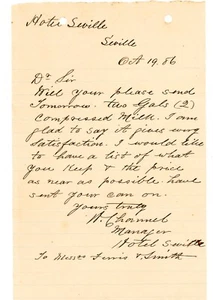 Hotel Seville
Seville
Oct 19. 86
Dr Sir
Will your please send
Tomorrow. two Gals (2)
Compressed Milk. I am
glad to say it gives
satisfaction. I would like
to have a list of what
you Keep & the price
as near as possible. have
sent your can on.
Yours truly
W. Channel
Manager
Hotel Seville
To Messrs Ferris & Smith